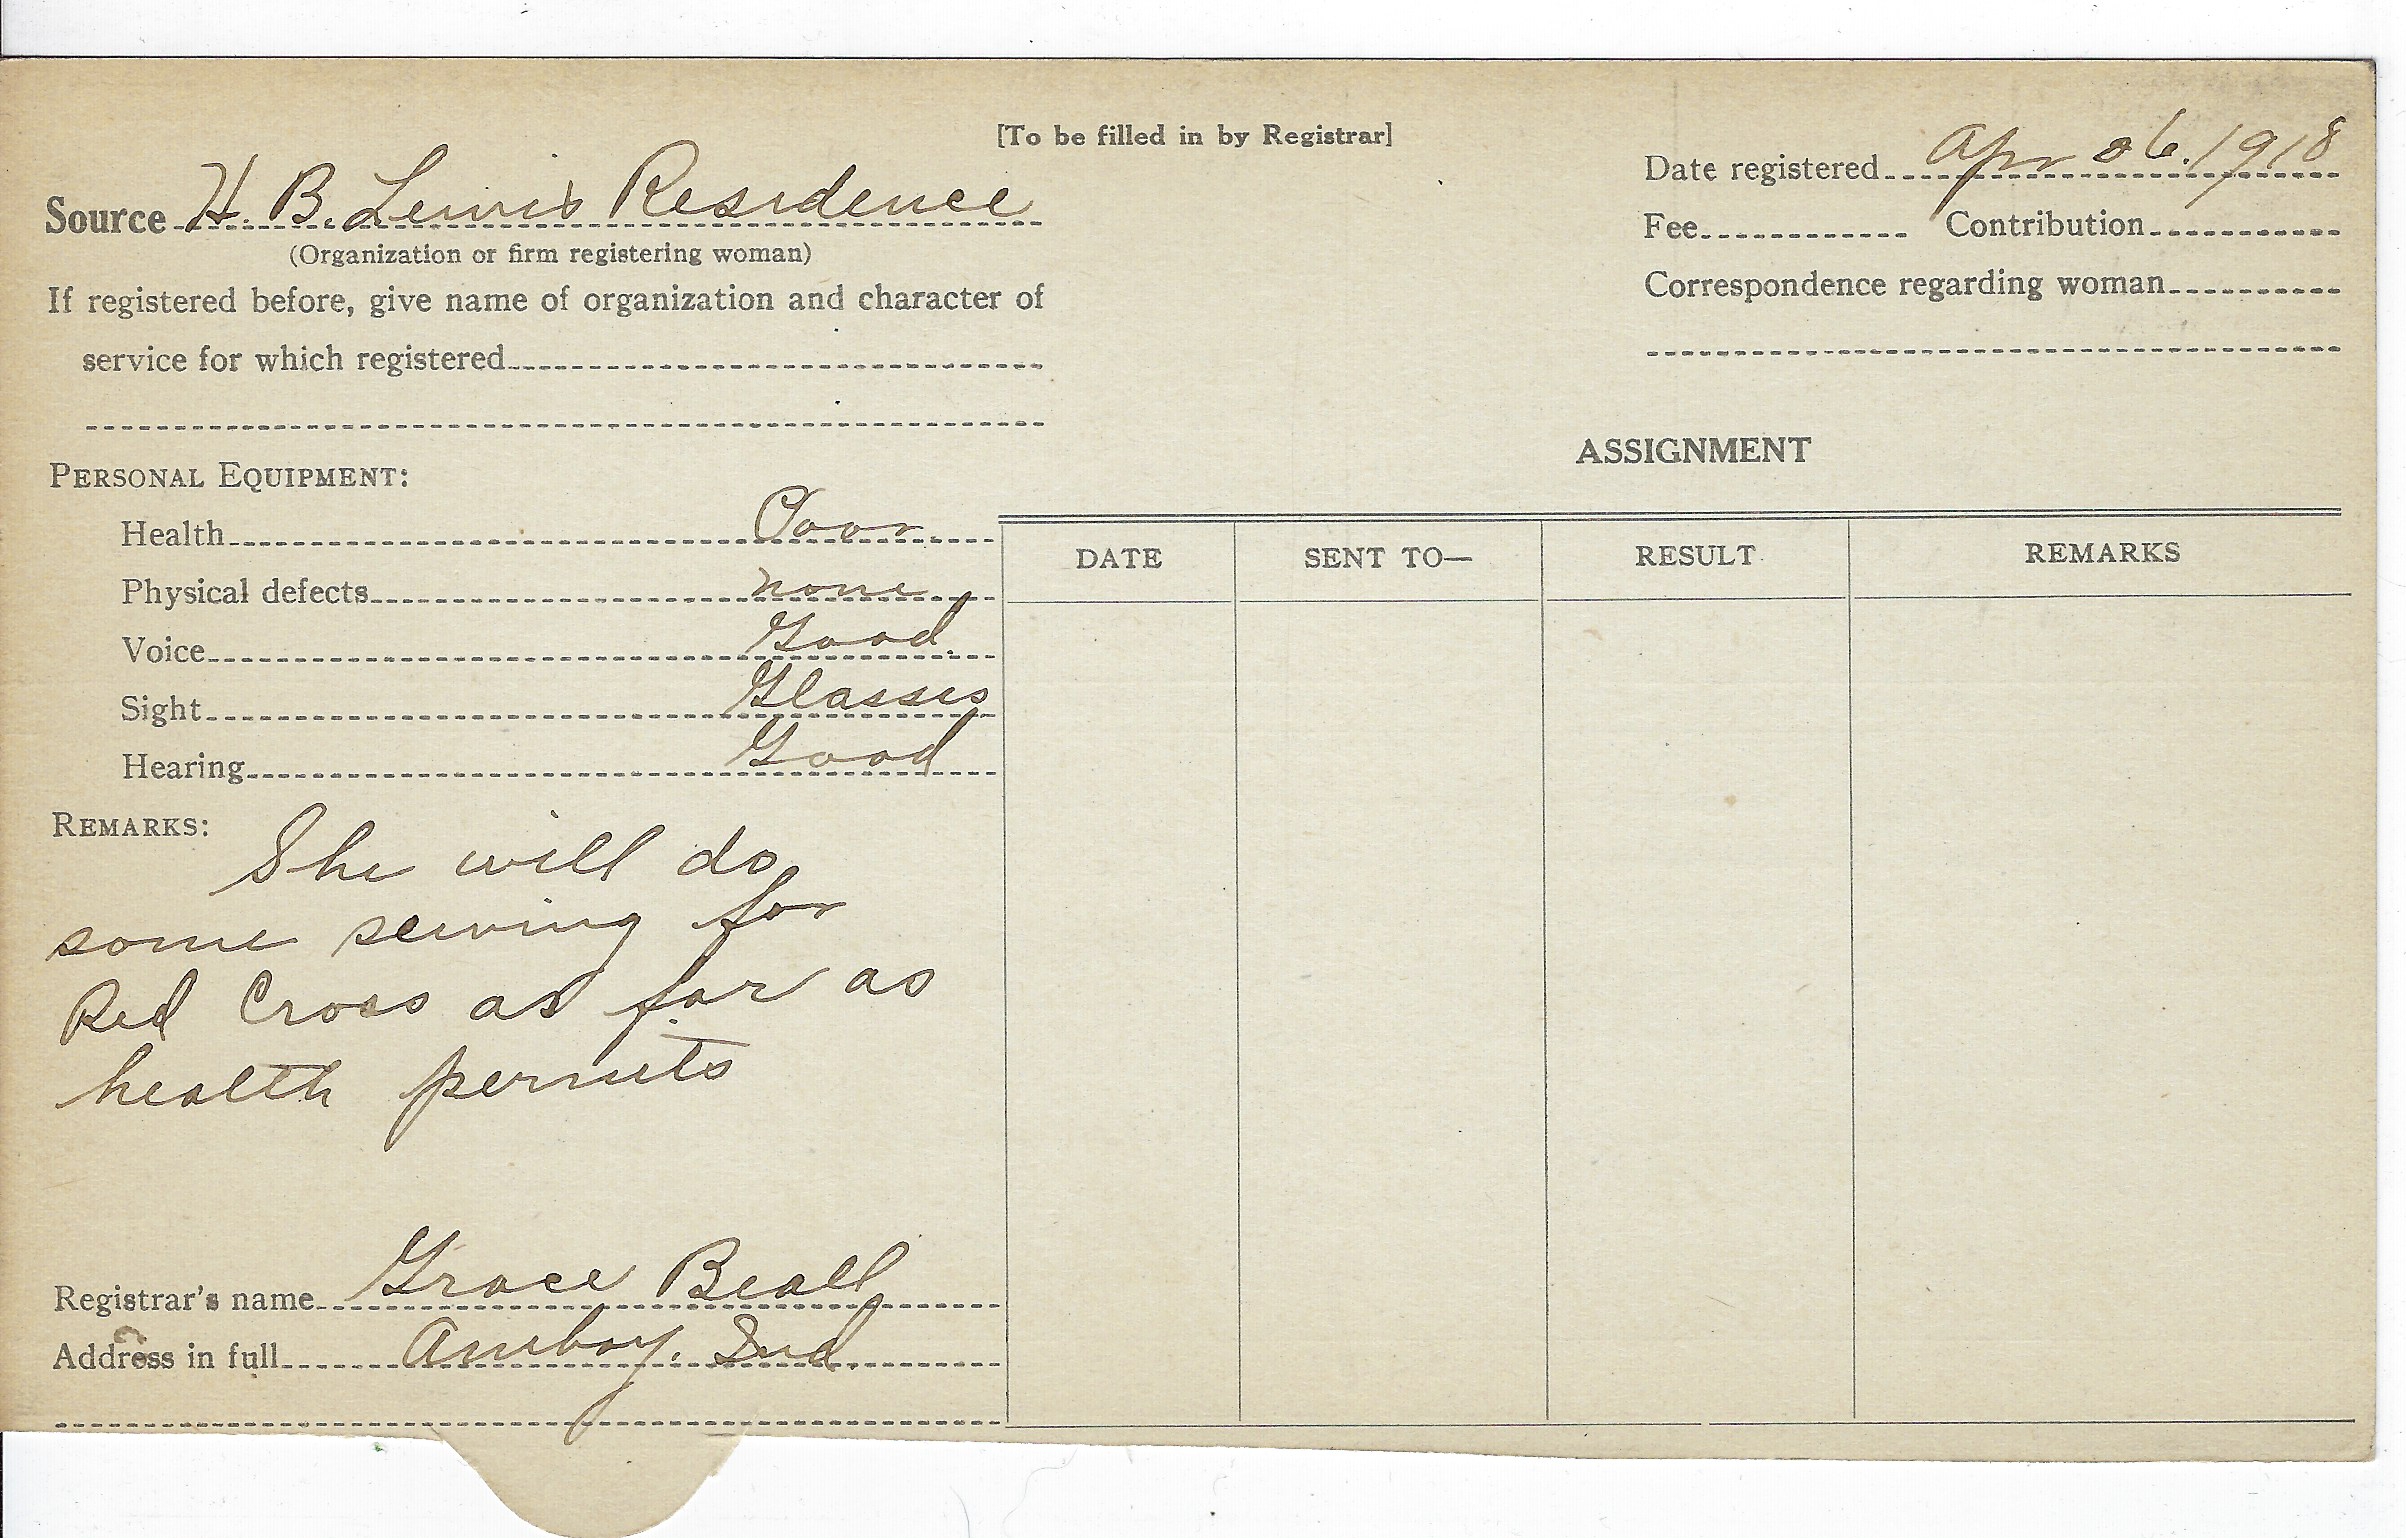 [To be filled in by Registrar]
Date registered Apr 26. 1918
Source H. B. Lewis Residence
(Organization or firm registering woman)
Fee Contribution
If registered before, give name of organization and character of
Correspondence regarding woman
service for which registered
ASSIGNMENT
PERSONAL EQUIPMENT:
Health Poor.
Physical defects none.
Voice Good.
Sight Glasses
Hearing Good
DATE SENT TO— RESULT REMARKS
REMARKS:
She will do
some sewing for
Red Cross as far as
health permits
Registrar's name Grace Beall
Address in full Amboy. Ind.